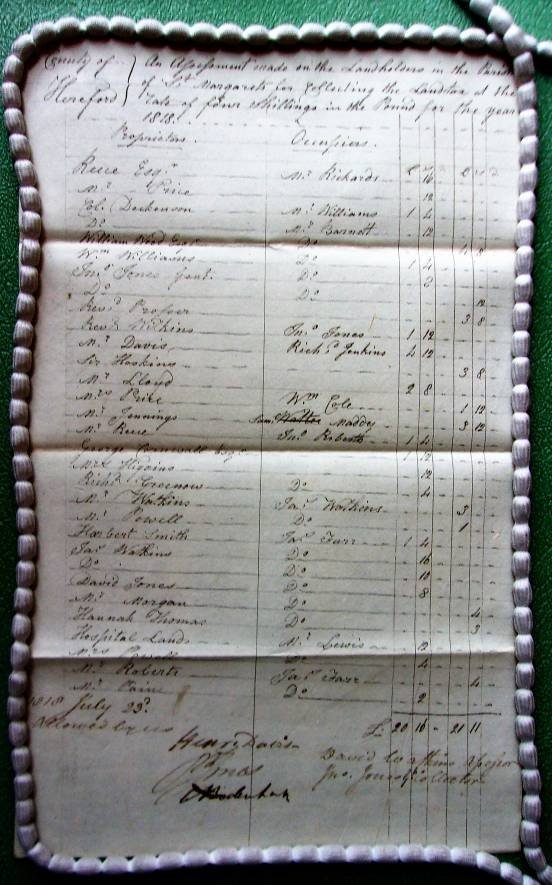 County of Hereford } An Assessment made on the Landholders in the Parish
of St Margarets for Collecting the Landtax at the
rate of four shillings in the Pound for the year
1818.
Proprietors. Occupiers.
Reece Esqr Mr Richards 16
Mr Price 12
Col. Mr Williams 1 4
Do Mr Barnett 12
William Wood Esqr Do 4 8
Wm Williams Do 1 4
Jno Jones gent. Do 2
Do Do
Revd Prosser 12
Revd Watkins 3 8
Mr Davis Jno Jones 1 12
Sir Hoskins Richd Jenkins 4 12
Mr Lloyd 3 8
Mrs Price 2 8
Mr Jennings Wm Cole 1 12
Mr Rees Maddy 3 12
George Cornwall Esqr Jno Roberts 1 4
Mrs Higgins 1 12
Richd Greenow Do 12
Mr Watkins 4
Mr Powell Jas Watkins 3
Harbert Smith Do 1
Jas Watkins Jas Farr 1 4
Do Do 16
David Jones Do 10
Mr Morgan Do 8
Hannah Thomas Do 4
Hospital Lands 3
Mr Lewis 12
Mr Roberts Do 4
Mr Jas Farr 4
Do 2
1818 July 23d
Allowed by us £ 20 16 - 21 11
Henry Davis
David Watkins Assessor
Jno Jones Collector